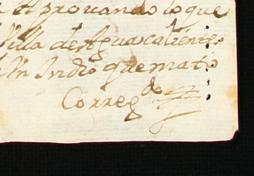 Aprovando lo que
Villa de Aguascalientes
Un Indio que mato
Correg.do